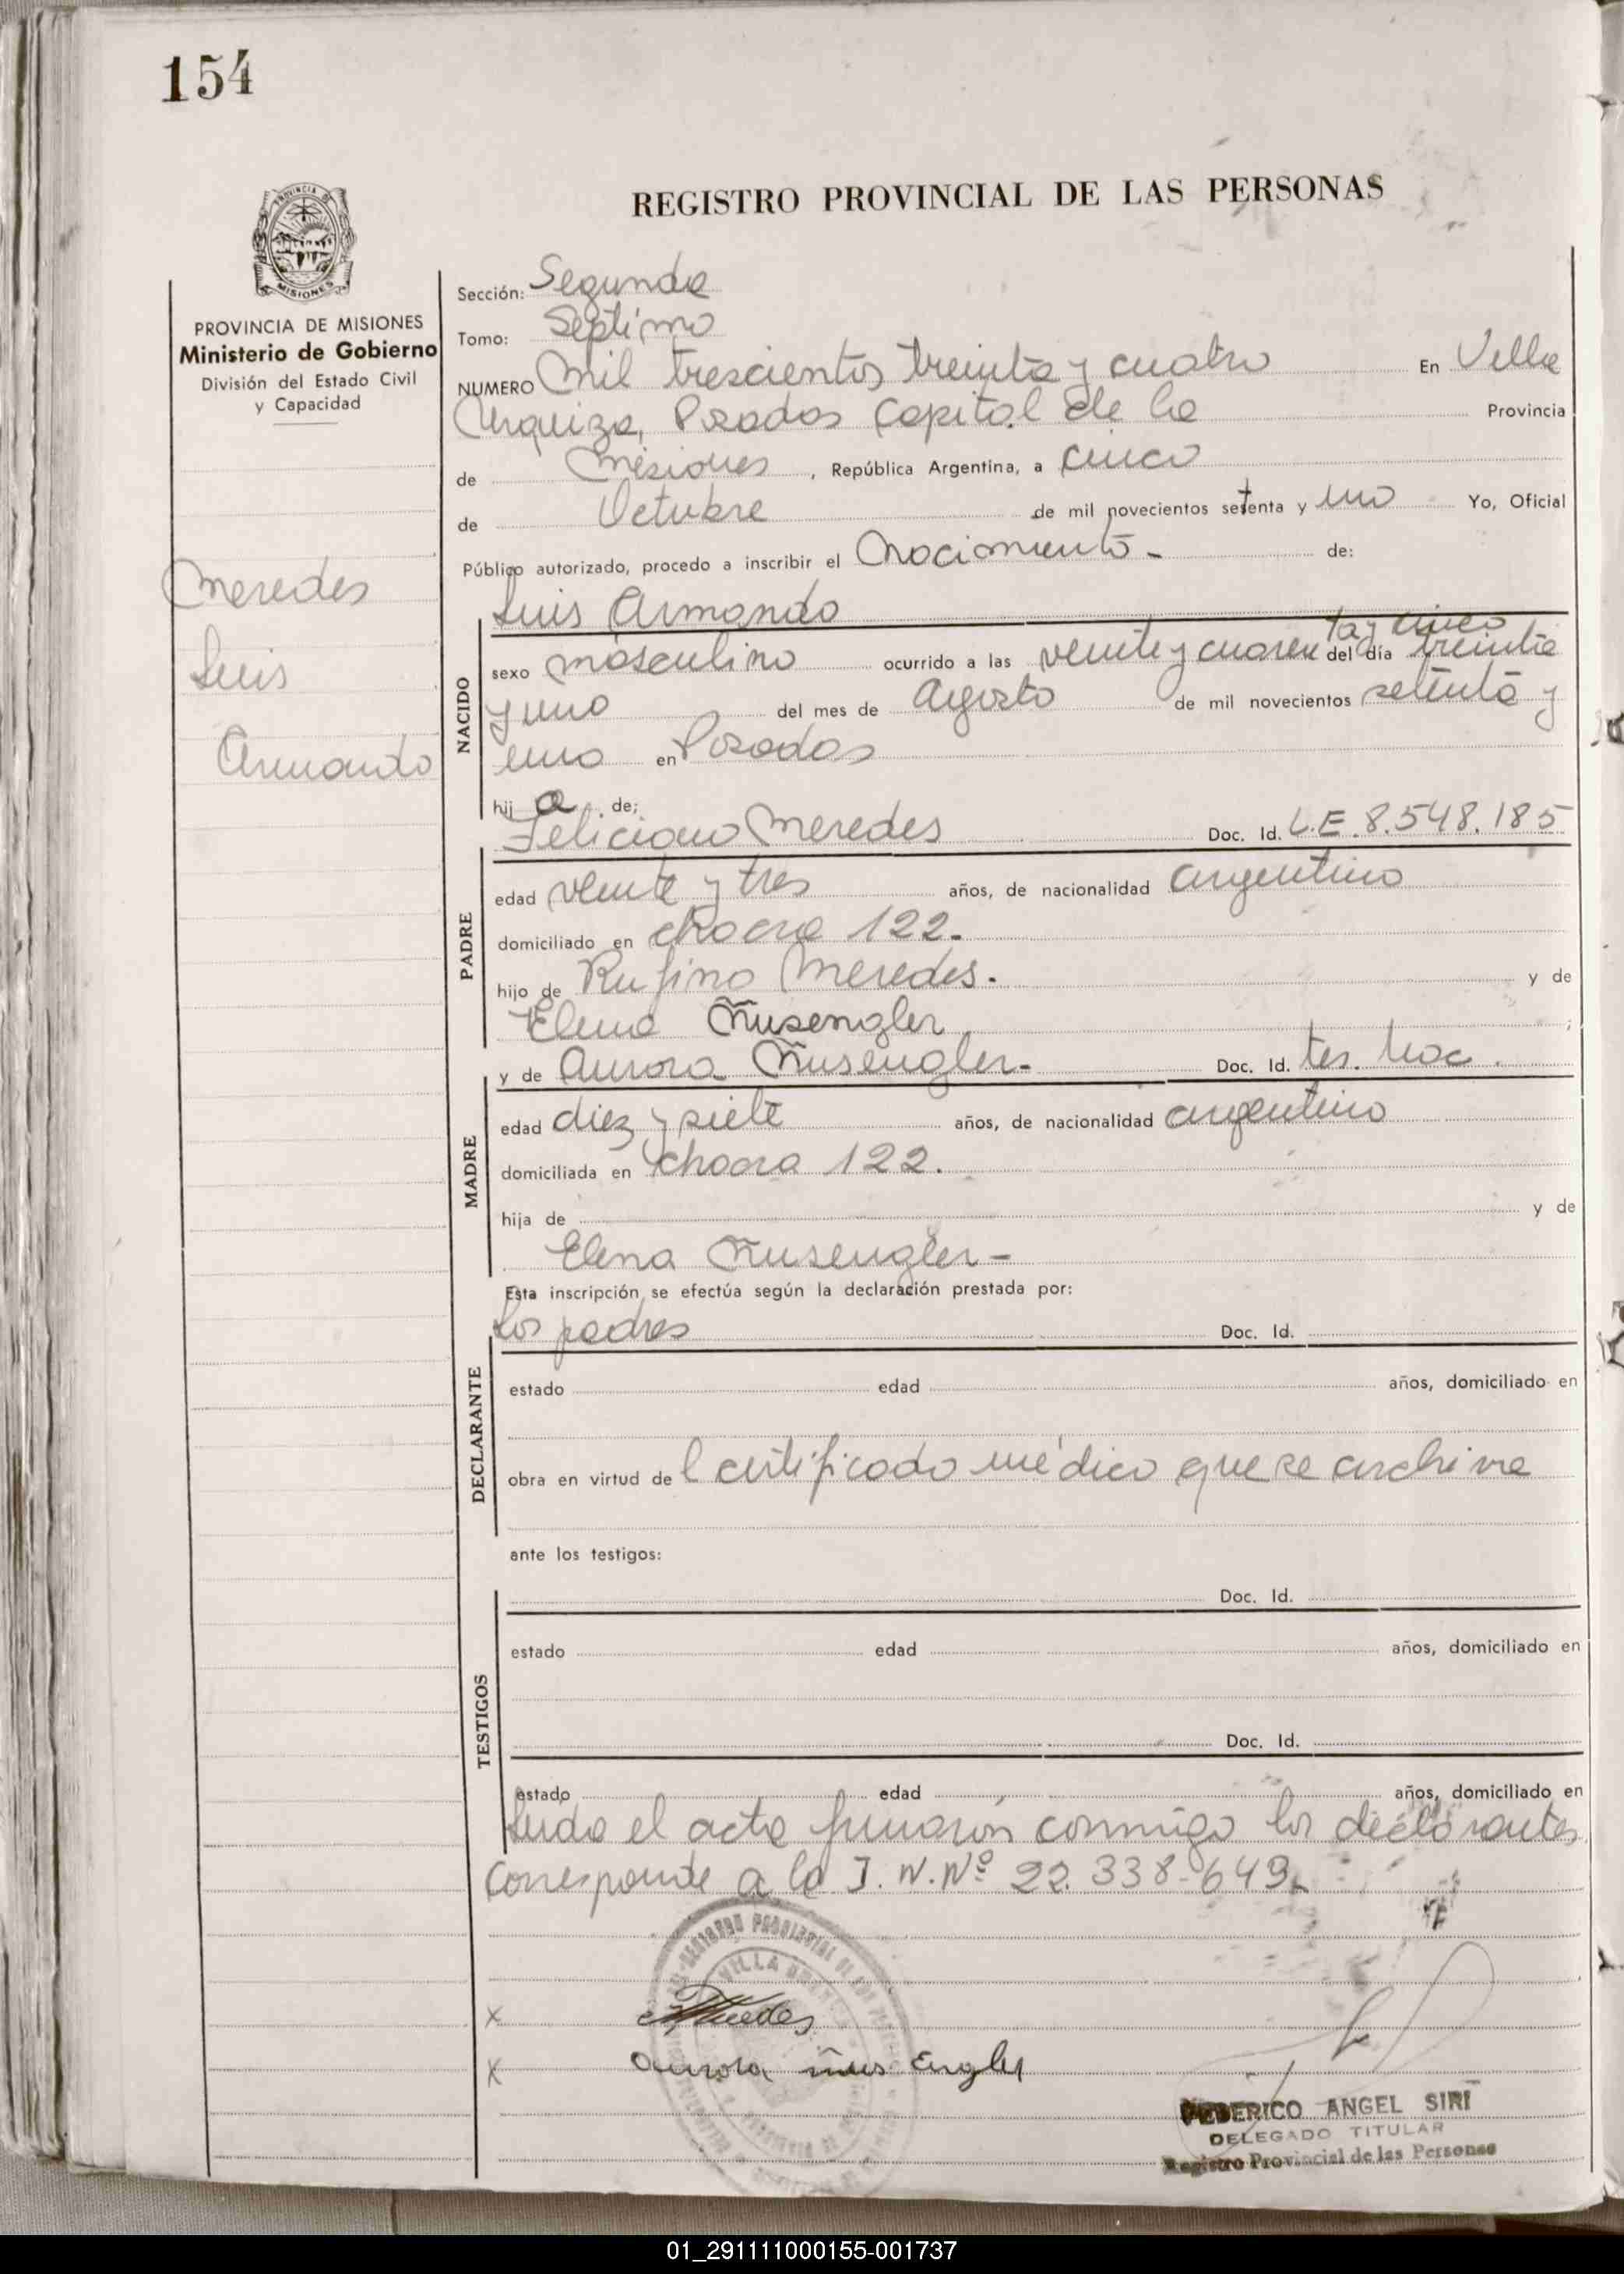 154
REGISTRO PROVINCIAL DE LAS PERSONAS
PROVINCIA
MISIONES
PROVINCIA DE MISIONES
Ministerio de Gobierno
División del Estado Civil
y Capacidad
Meredes
Luis
Armando
Sección: Segunda
Tomo: Septimo
NUMERO Mil trescientos treinta y cuatro En Villa
Urquiza, Posadas Capital de la Provincia
de Misiones, República Argentina, a cinco
de Octubre de mil novecientos setenta y uno Yo, Oficial
Público autorizado, procedo a inscribir el Nacimiento - de:
Luis Armando
NACIDO
ta y cinco
sexo masculino ocurrido a las veinte y cuaren del día treinta
y uno del mes de Agosto de mil novecientos setenta y
uno en Posadas
hij o de;
Feliciano Meredes Doc. Id. L.E. 8.548.185
PADRE
edad veinte y tres años, de nacionalidad argentino
domiciliado en chacra 122.
hijo de Rufino Meredes. y de
Elena Ñusengler ;
y de Aurora Ñusengler- Doc. Id. tes. Nac.
MADRE
edad diez y siete años, de nacionalidad argentino
domiciliada en chacra 122.
hija de y de
Elena Ñusengler -
Esta inscripción se efectúa según la declaración prestada por:
los padres Doc. Id.
DECLARANTE
estado edad años, domiciliado en
obra en virtud de l certificado médico que se archiva
ante los testigos:
Doc. Id.
TESTIGOS
estado edad años, domiciliado en
Doc. Id.
estado edad años, domiciliado en
Leida el acta firmaron conmigo los declarantes
Corresponde a la I. N. Nº 22.338-649.
VILLA
X
X Aurora ñus Engler
FEDERICO ANGEL SIRI
DELEGADO TITULAR
Registro Provincial de las Personas
01_291111000155-001737